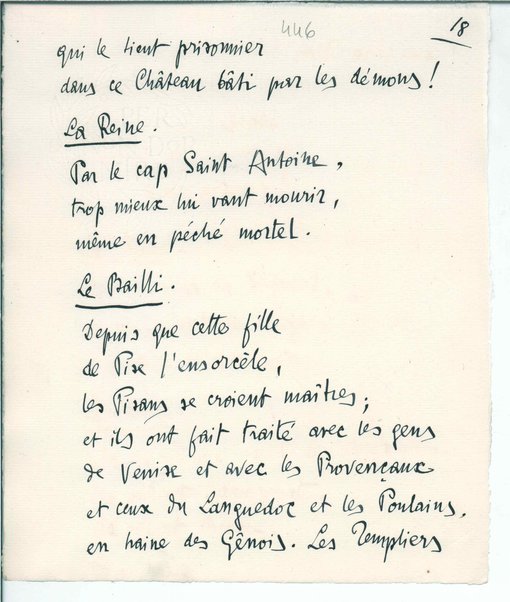 446
18
qui le tient prisonnier
dans ce Château bâti par les démons !
La Reine.
Par le cap Saint Antoine,
trop mieux lui vaut mourir,
même en péché mortel.
Le Bailli.
Depuis que cette fille
de Pise l'ensorcèle,
les Pisans se croient maîtres;
et ils ont fait traité avec les gens
de Venise et avec les Provençaux
et ceux du Languedoc et les Poulains,
en haine des Gênois. Les Templiers